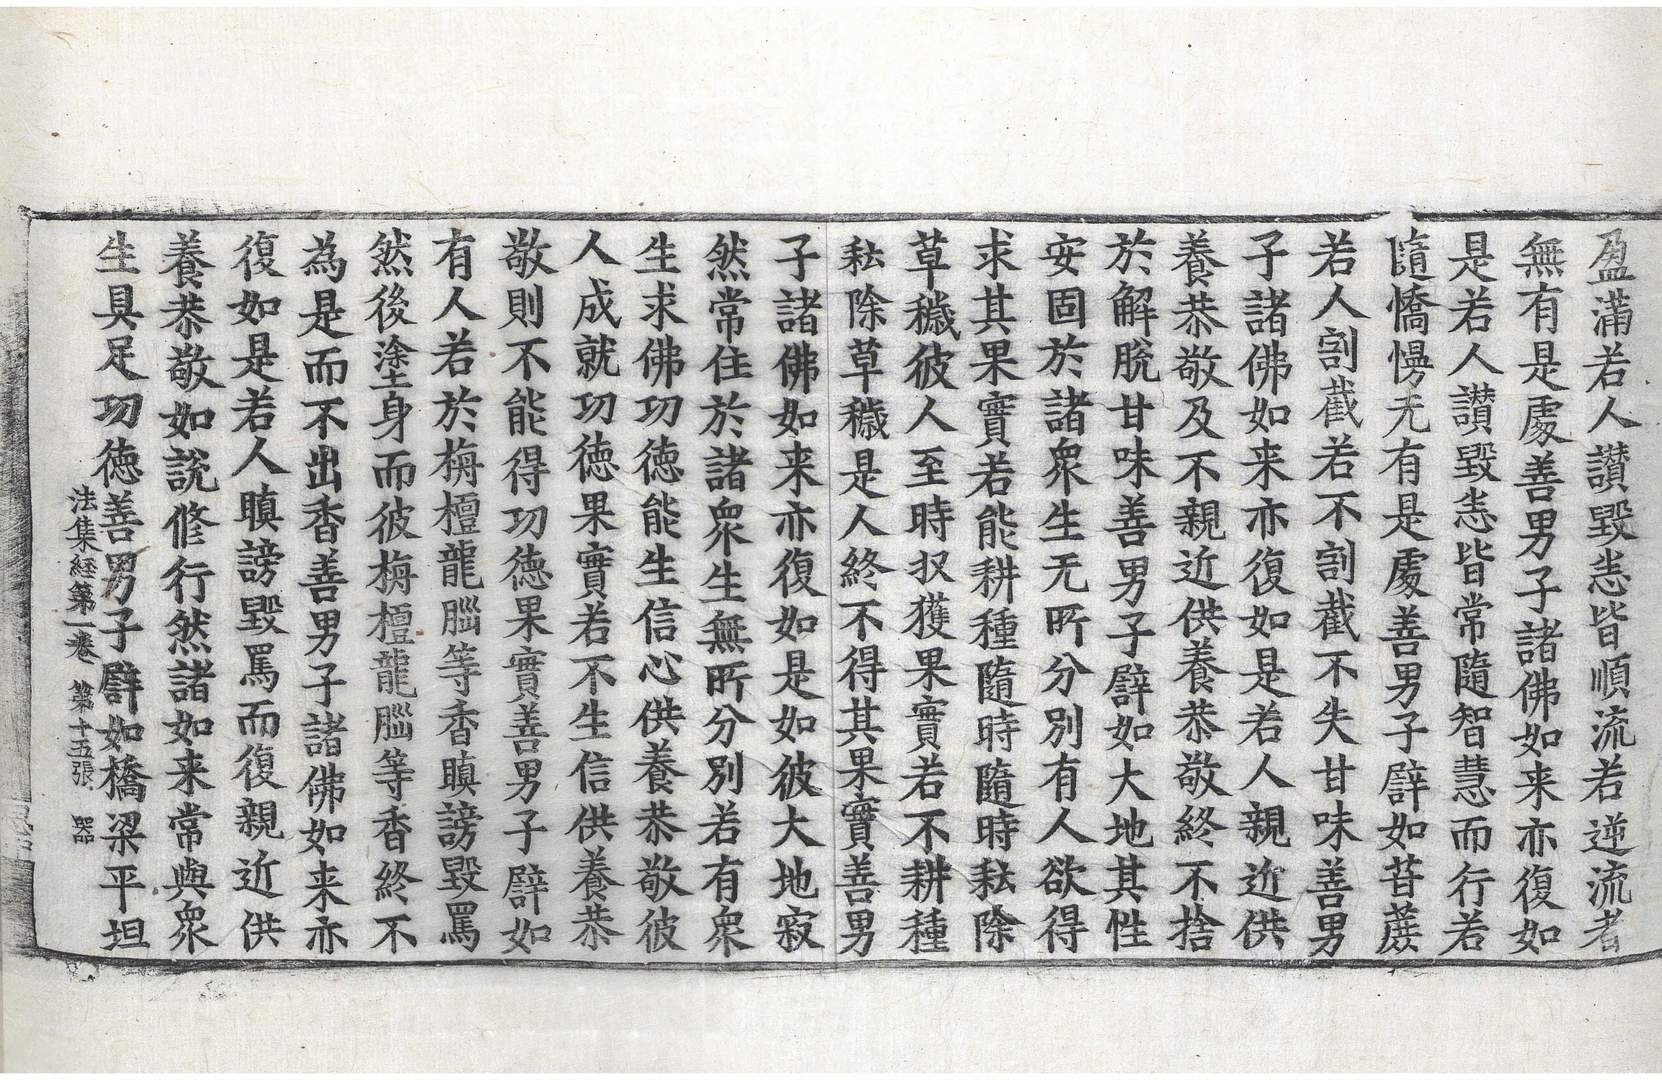 盈滿若人讃毀恚皆順流若逆流者
無有是處善男子諸佛如来亦復如
是若人讃毀恚皆常隨智慧而行若
隨憍慢无有是處善男子譬如苷蔗
若人割截若不割截不失甘味善男
子諸佛如来亦復如是若人親近供
養恭敬及不親近供養恭敬終不捨
於解脫甘味善男子譬如大地其性
安固於諸衆生无所分別有人欲得
求其果實若能耕種隨時隨時耘除
草穢彼人至時収獲果實若不耕種
耘除草穢是人終不得其果實善男
子諸佛如来亦復如是如彼大地寂
然常住於諸衆生無所分別若有衆
生求佛功徳能生信心供養恭敬彼
人成就功徳果實若不生信供養恭
敬則不能得功徳果實善男子譬如
有人若於栴檀龍腦等香瞋謗毀罵
然後塗身而彼栴檀龍腦等香終不
為是而不出香善男子諸佛如来亦
復如是若人瞋謗毀罵而復親近供
養恭敬如說修行然諸如来常與衆
生具足功徳善男子譬如橋梁平坦
法集経第一卷 第十五張 器